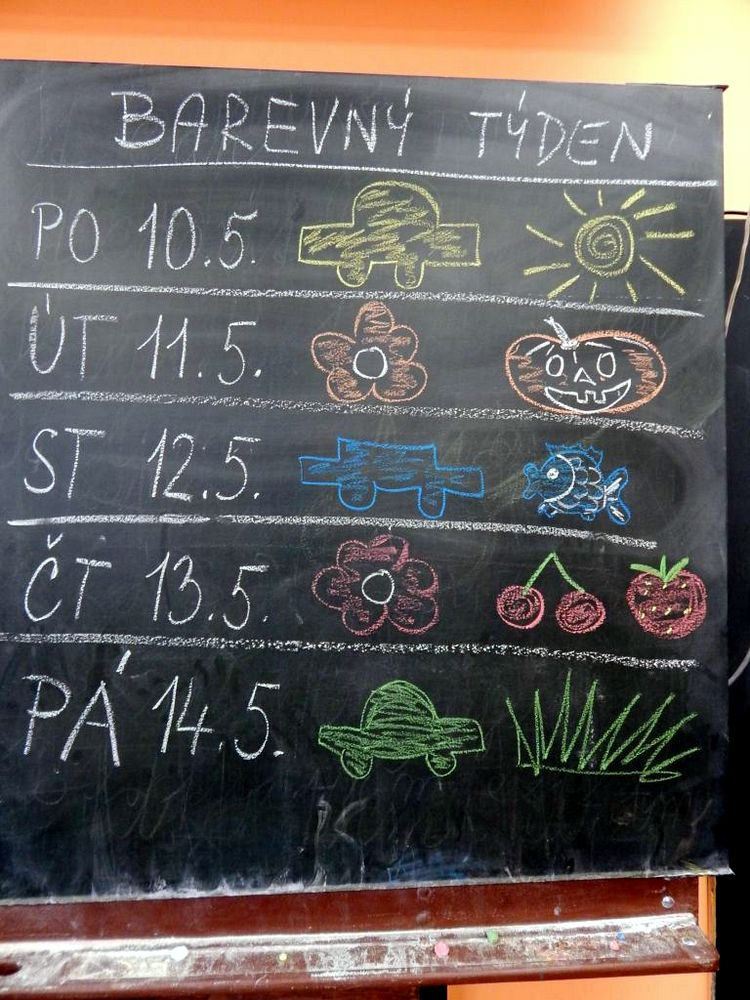 BAREVNÝ TÝDEN
PO 10.5.
ÚT 11.5.
ST 12.5.
ČT 13.5.
PÁ 14.5.